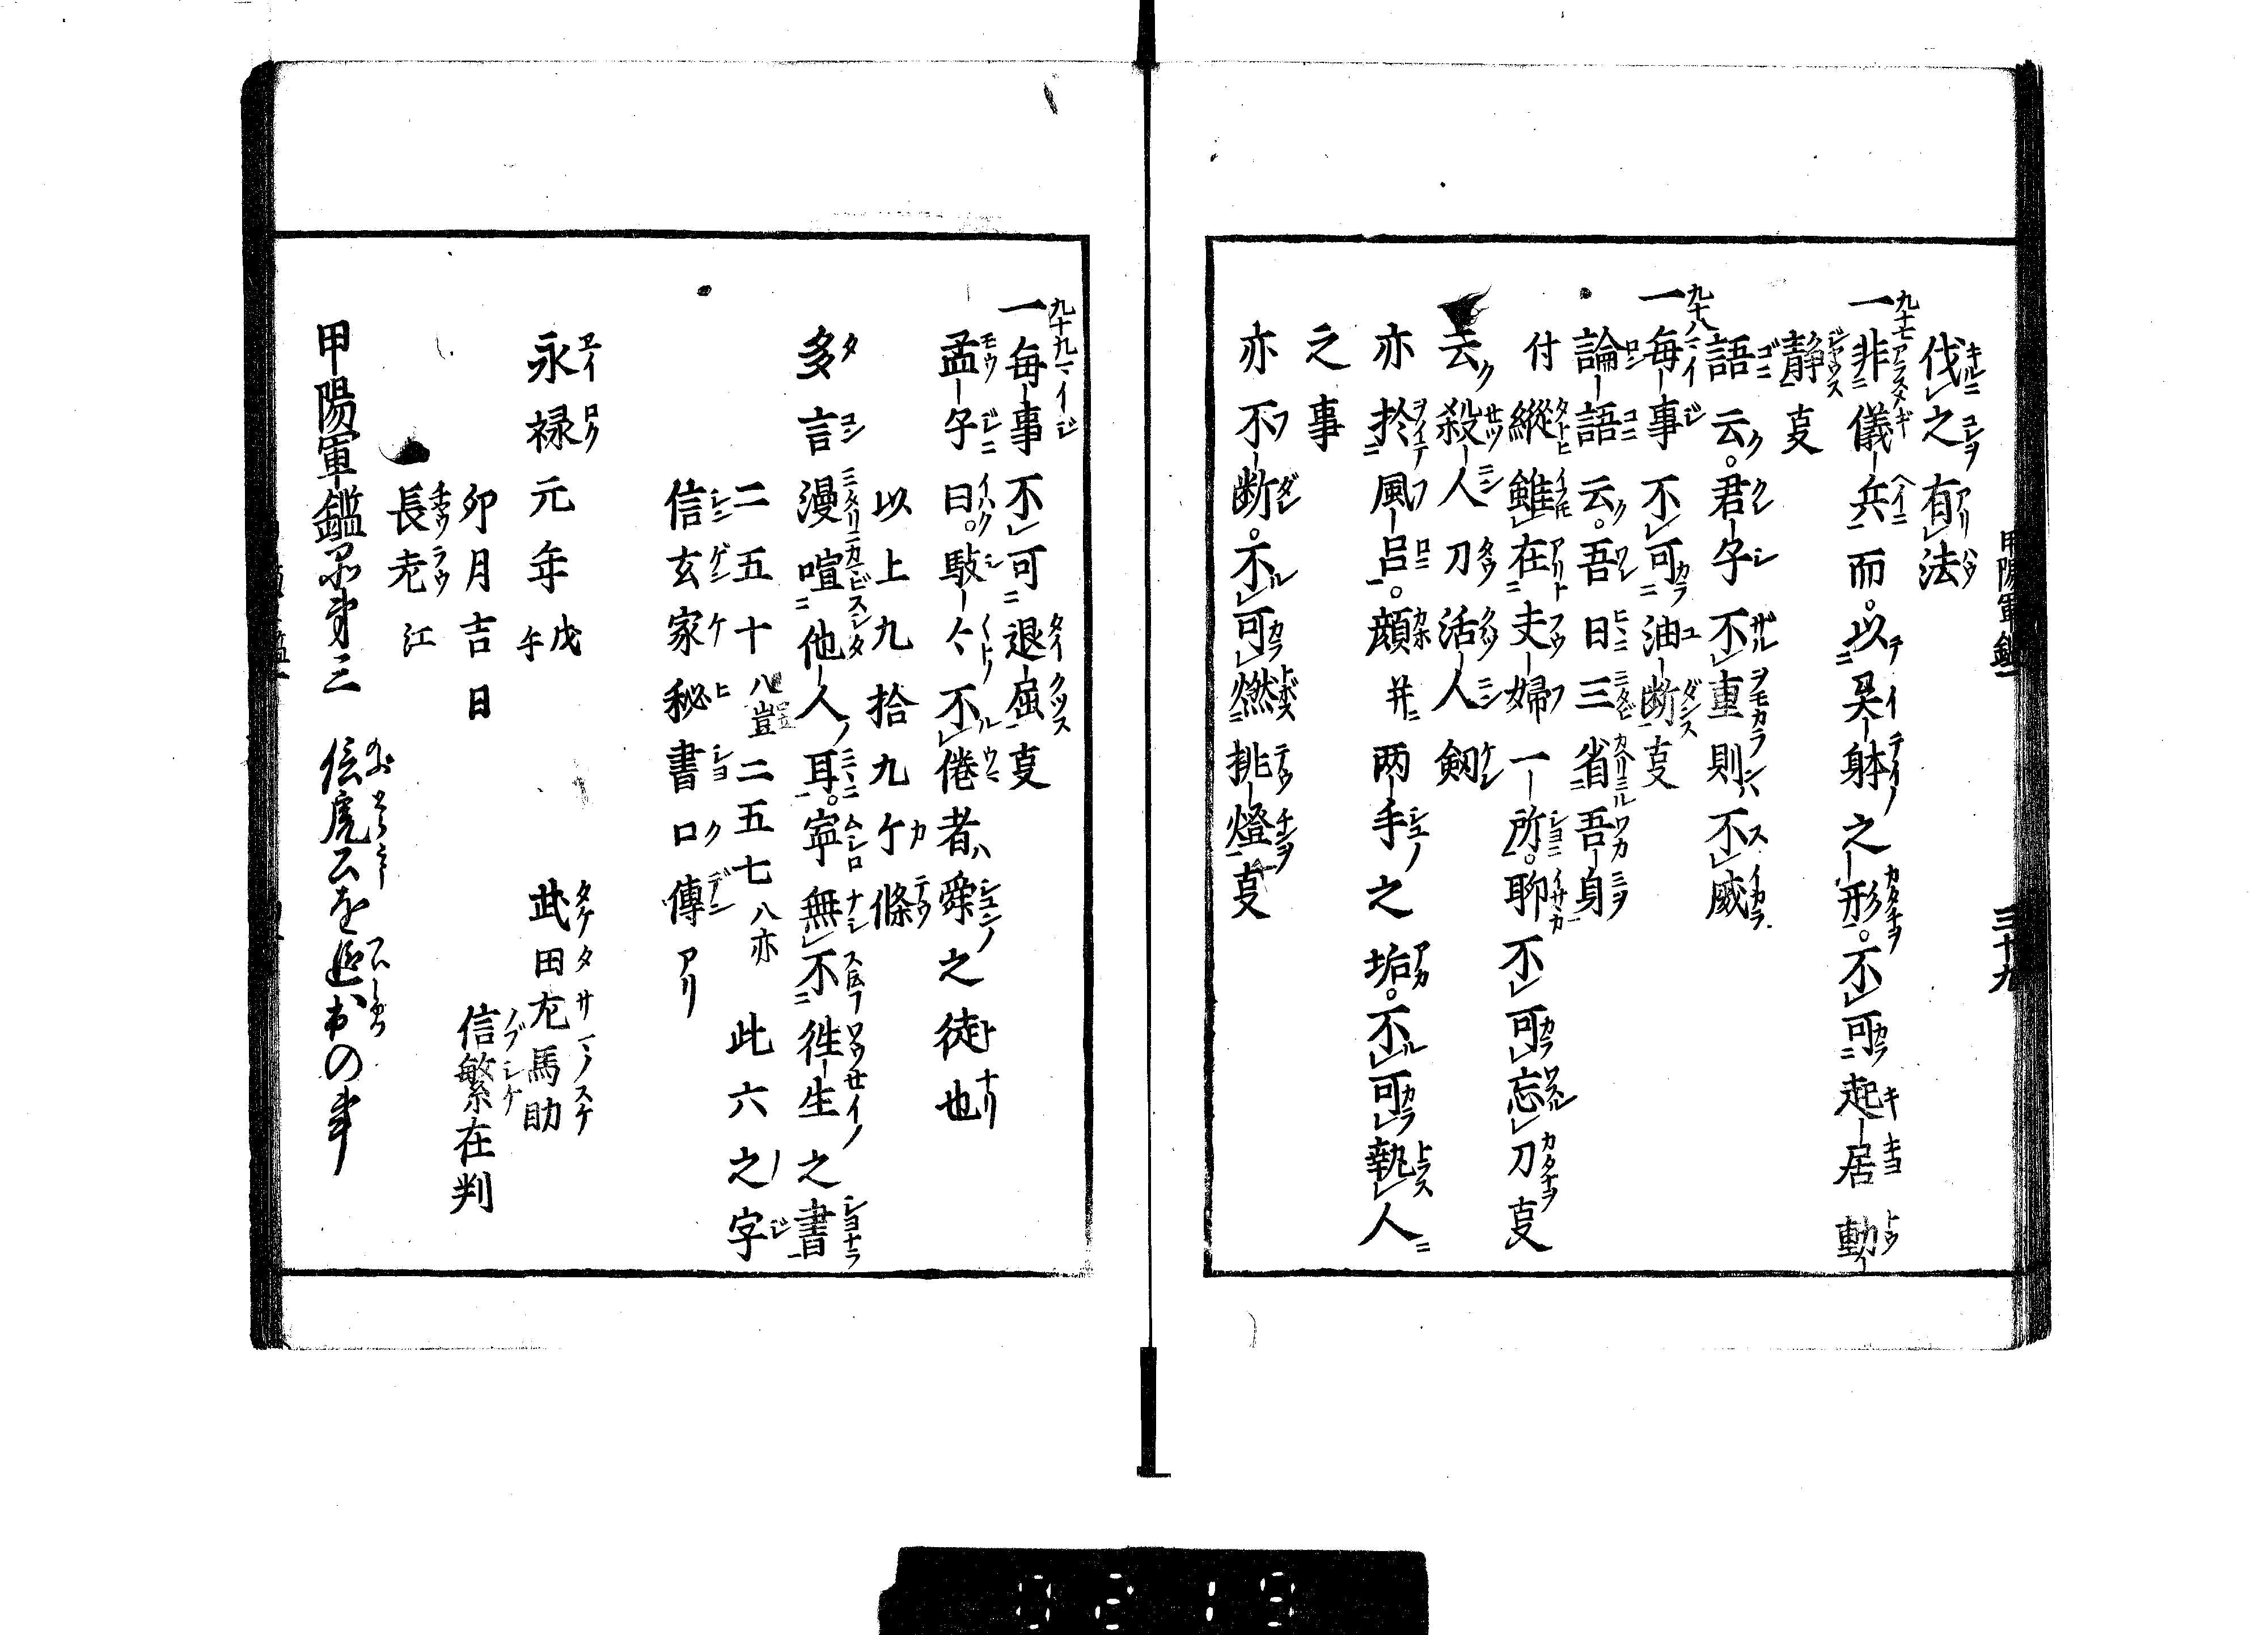 伐之有法
九十七
一非儀兵而。以異身之形。不可起居動
静叓
語云。君子不重則不威
九十八
一毎事不可油断叓
論語云。吾日三省吾身
付縱雖在夫婦一所。聊不可忘刀叓
云殺人刀活人剱
亦於風呂。顔并両手之垢。不可執人
之事
亦不断。不可燃挑燈叓
甲陽軍鑑
三十九
九十九
一毎事不可退屈叓
孟子曰。𡥉々不倦者舜之徒也
以上九拾九ケ條
多言漫喧他人耳。寧無不徃生之書
二五十八豈二五七八亦此六之字
信玄家秘書口傳アリ
永禄元年戊午 武田左馬助
卯月吉日 信繁在判
長老江
甲陽軍鑑品第三 信虎公を追出の事